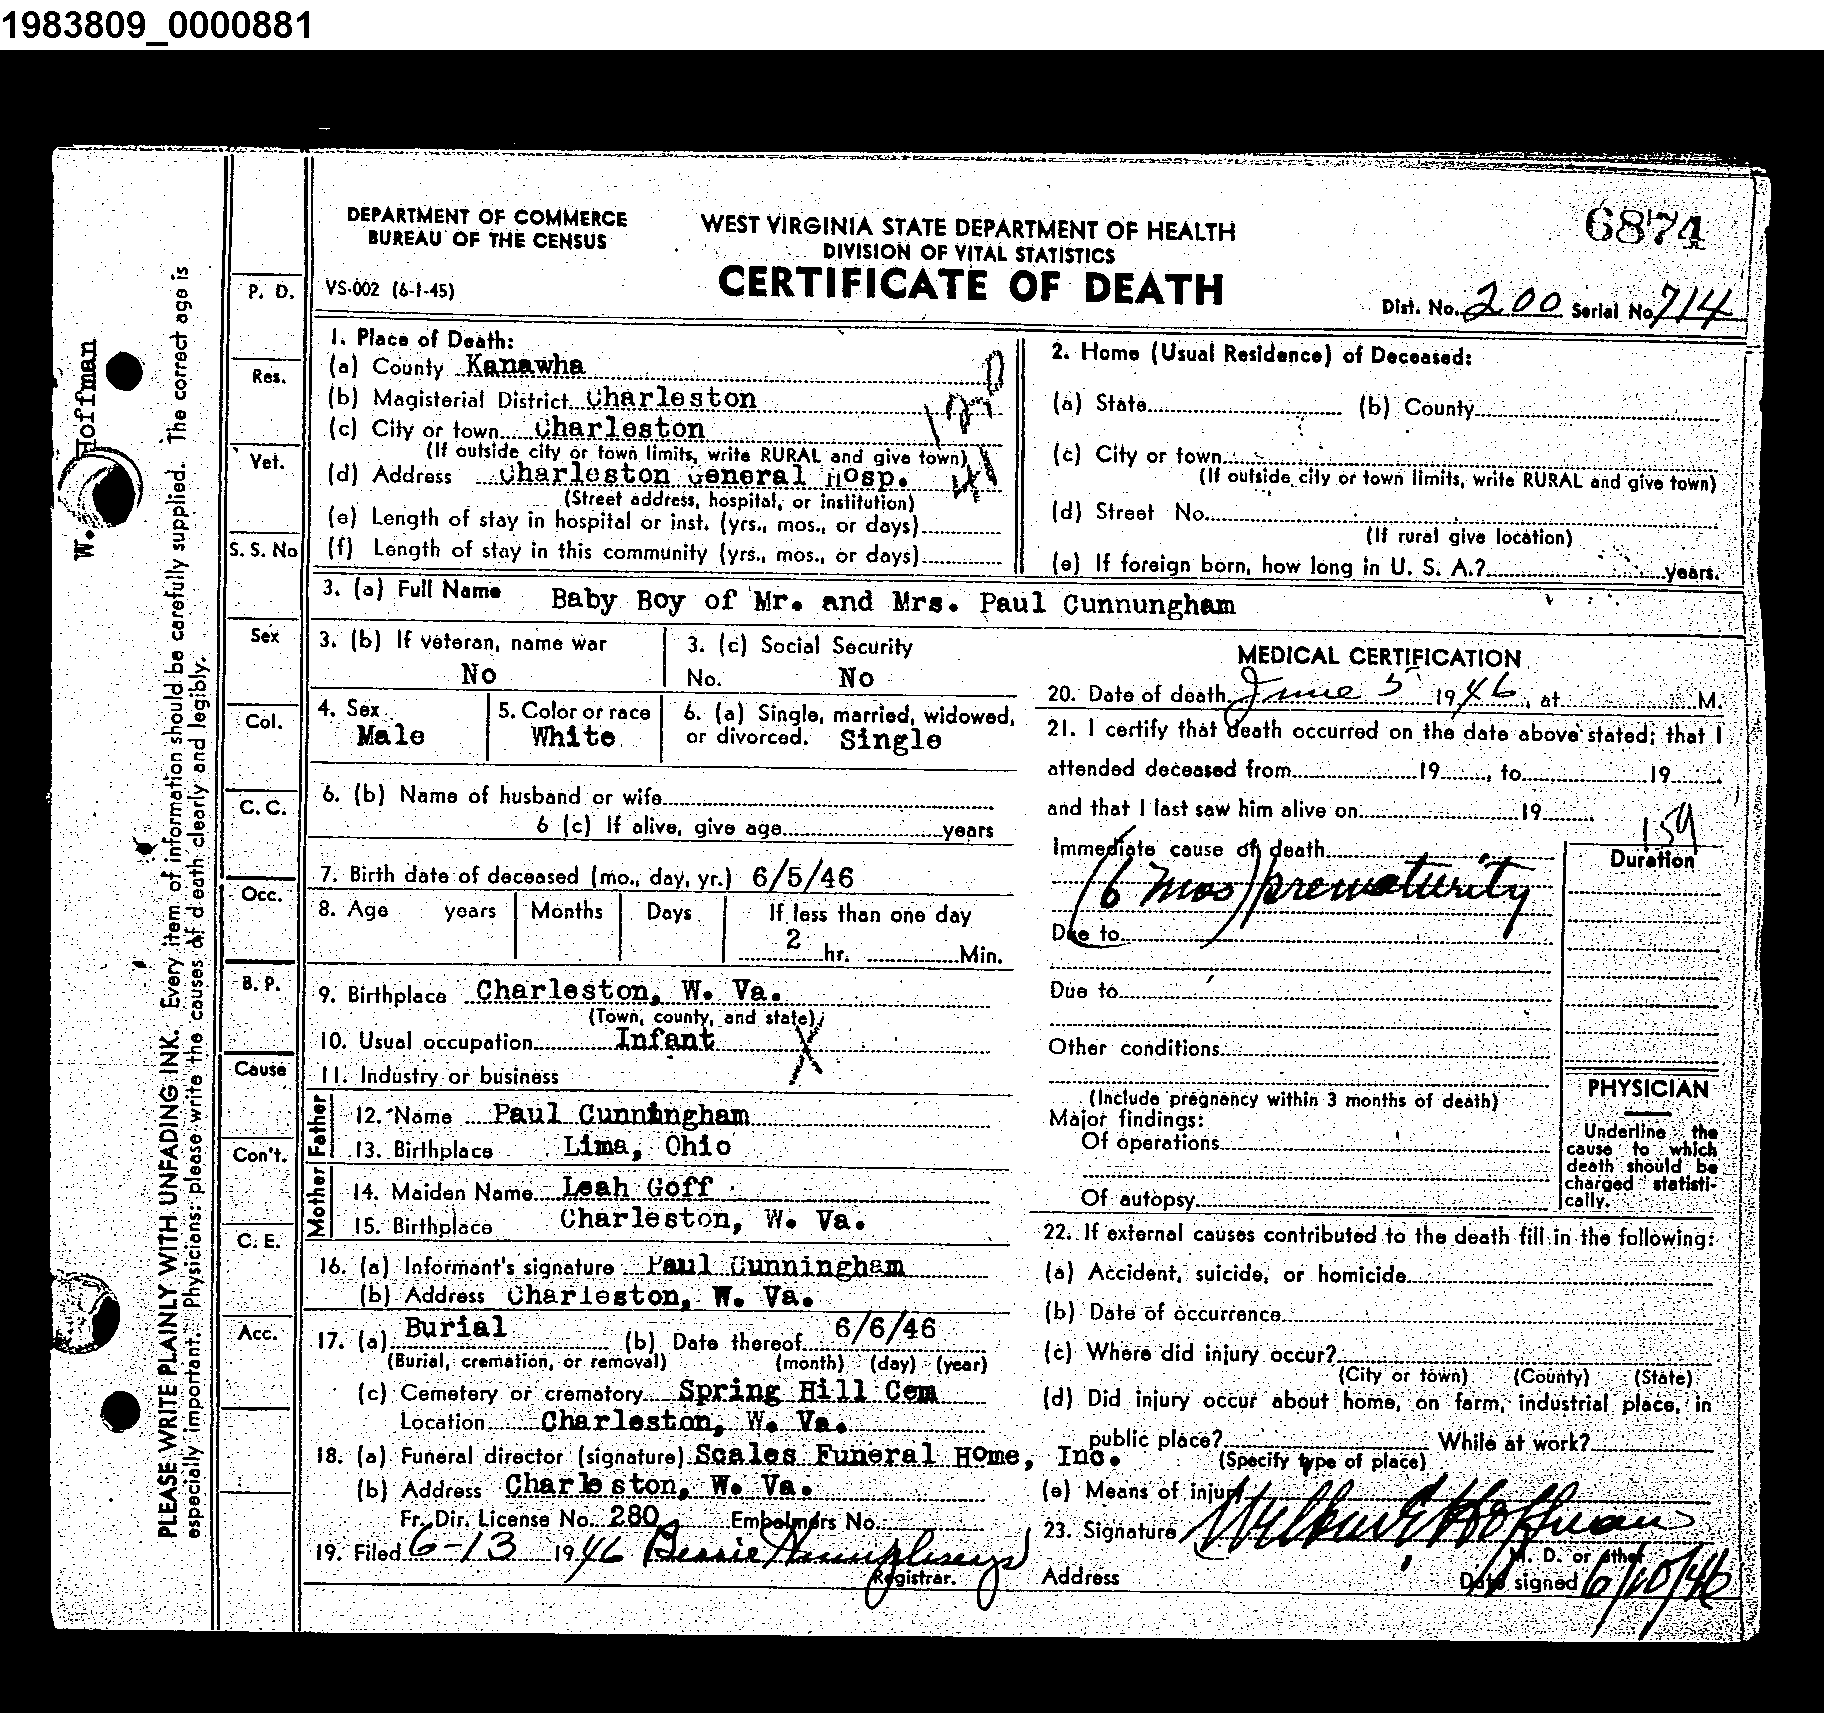 1983809_0000881
DEPARTMENT OF COMMERCE
BUREAU OF THE CENSUS
WEST VIRGINIA STATE DEPARTMENT OF HEALTH
DIVISION OF VITAL STATISTICS
CERTIFICATE OF DEATH
6874
VS-002 (6-1-45)
Dist. No. 200 Serial No. 714
W. Hoffman
PLEASE WRITE PLAINLY WITH UNFADING INK. Every item of information should be carefully supplied. The correct age is
especially important. Physicians: please write the causes of death clearly and legibly.
P. D.
Res.
Vet.
S. S. No
Sex
Col.
C. C.
Occ.
B. P.
Cause
Con't.
C. E.
Acc.
1. Place of Death:
(a) County Kanawha
(b) Magisterial District Charleston
(c) City or town Charleston
(If outside city or town limits, write RURAL and give town)
(d) Address Charleston General Hosp.
(Street address, hospital, or institution)
(e) Length of stay in hospital or inst. (yrs., mos., or days)
(f) Length of stay in this community (yrs., mos., or days)
2. Home (Usual Residence) of Deceased:
(a) State (b) County
(c) City or town
(If outside city or town limits, write RURAL and give town)
(d) Street No.
(If rural give location)
(e) If foreign born, how long in U. S. A.? years.
3. (a) Full Name Baby Boy of Mr. and Mrs. Paul Cunnungham
3. (b) If veteran, name war
No
3. (c) Social Security
No. No
4. Sex
Male
5. Color or race
White
6. (a) Single, married, widowed,
or divorced. Single
6. (b) Name of husband or wife
6 (c) If alive, give age years
7. Birth date of deceased (mo., day, yr.) 6/5/46
8. Age years Months Days If less than one day
2 hr. Min.
9. Birthplace Charleston, W. Va.
(Town, county, and state)
10. Usual occupation Infant X
11. Industry or business
Father
12. Name Paul Cunningham
13. Birthplace Lima, Ohio
Mother
14. Maiden Name Leah Goff
15. Birthplace Charleston, W. Va.
16. (a) Informant's signature Paul Cunningham
(b) Address Charleston, W. Va.
17. (a) Burial (b) Date thereof 6/6/46
(Burial, cremation, or removal) (month) (day) (year)
(c) Cemetery or crematory Spring Hill Cem
Location Charleston, W. Va.
18. (a) Funeral director (signature) Scales Funeral Home, Inc.
(b) Address Charleston, W. Va.
Fr. Dir. License No. 280 Embalmers No.
19. Filed 6-13 1946 Bessie Humphreys
Registrar.
MEDICAL CERTIFICATION
20. Date of death June 5 1946, at M.
21. I certify that death occurred on the date above stated; that I
attended deceased from 19 , to 19
and that I last saw him alive on 19
159
Immediate cause of death
(6 mos) prematurity
Duration
Due to
Due to
Other conditions
(Include pregnancy within 3 months of death)
Major findings:
Of operations
Of autopsy
PHYSICIAN
Underline the
cause to which
death should be
charged statisti-
cally.
22. If external causes contributed to the death fill in the following:
(a) Accident, suicide, or homicide
(b) Date of occurrence
(c) Where did injury occur?
(City or town) (County) (State)
(d) Did injury occur about home, on farm, industrial place, in
public place? While at work?
(Specify type of place)
(e) Means of injury
23. Signature Wilbur E Hoffman
M. D. or other
Address Date signed 6/10/46